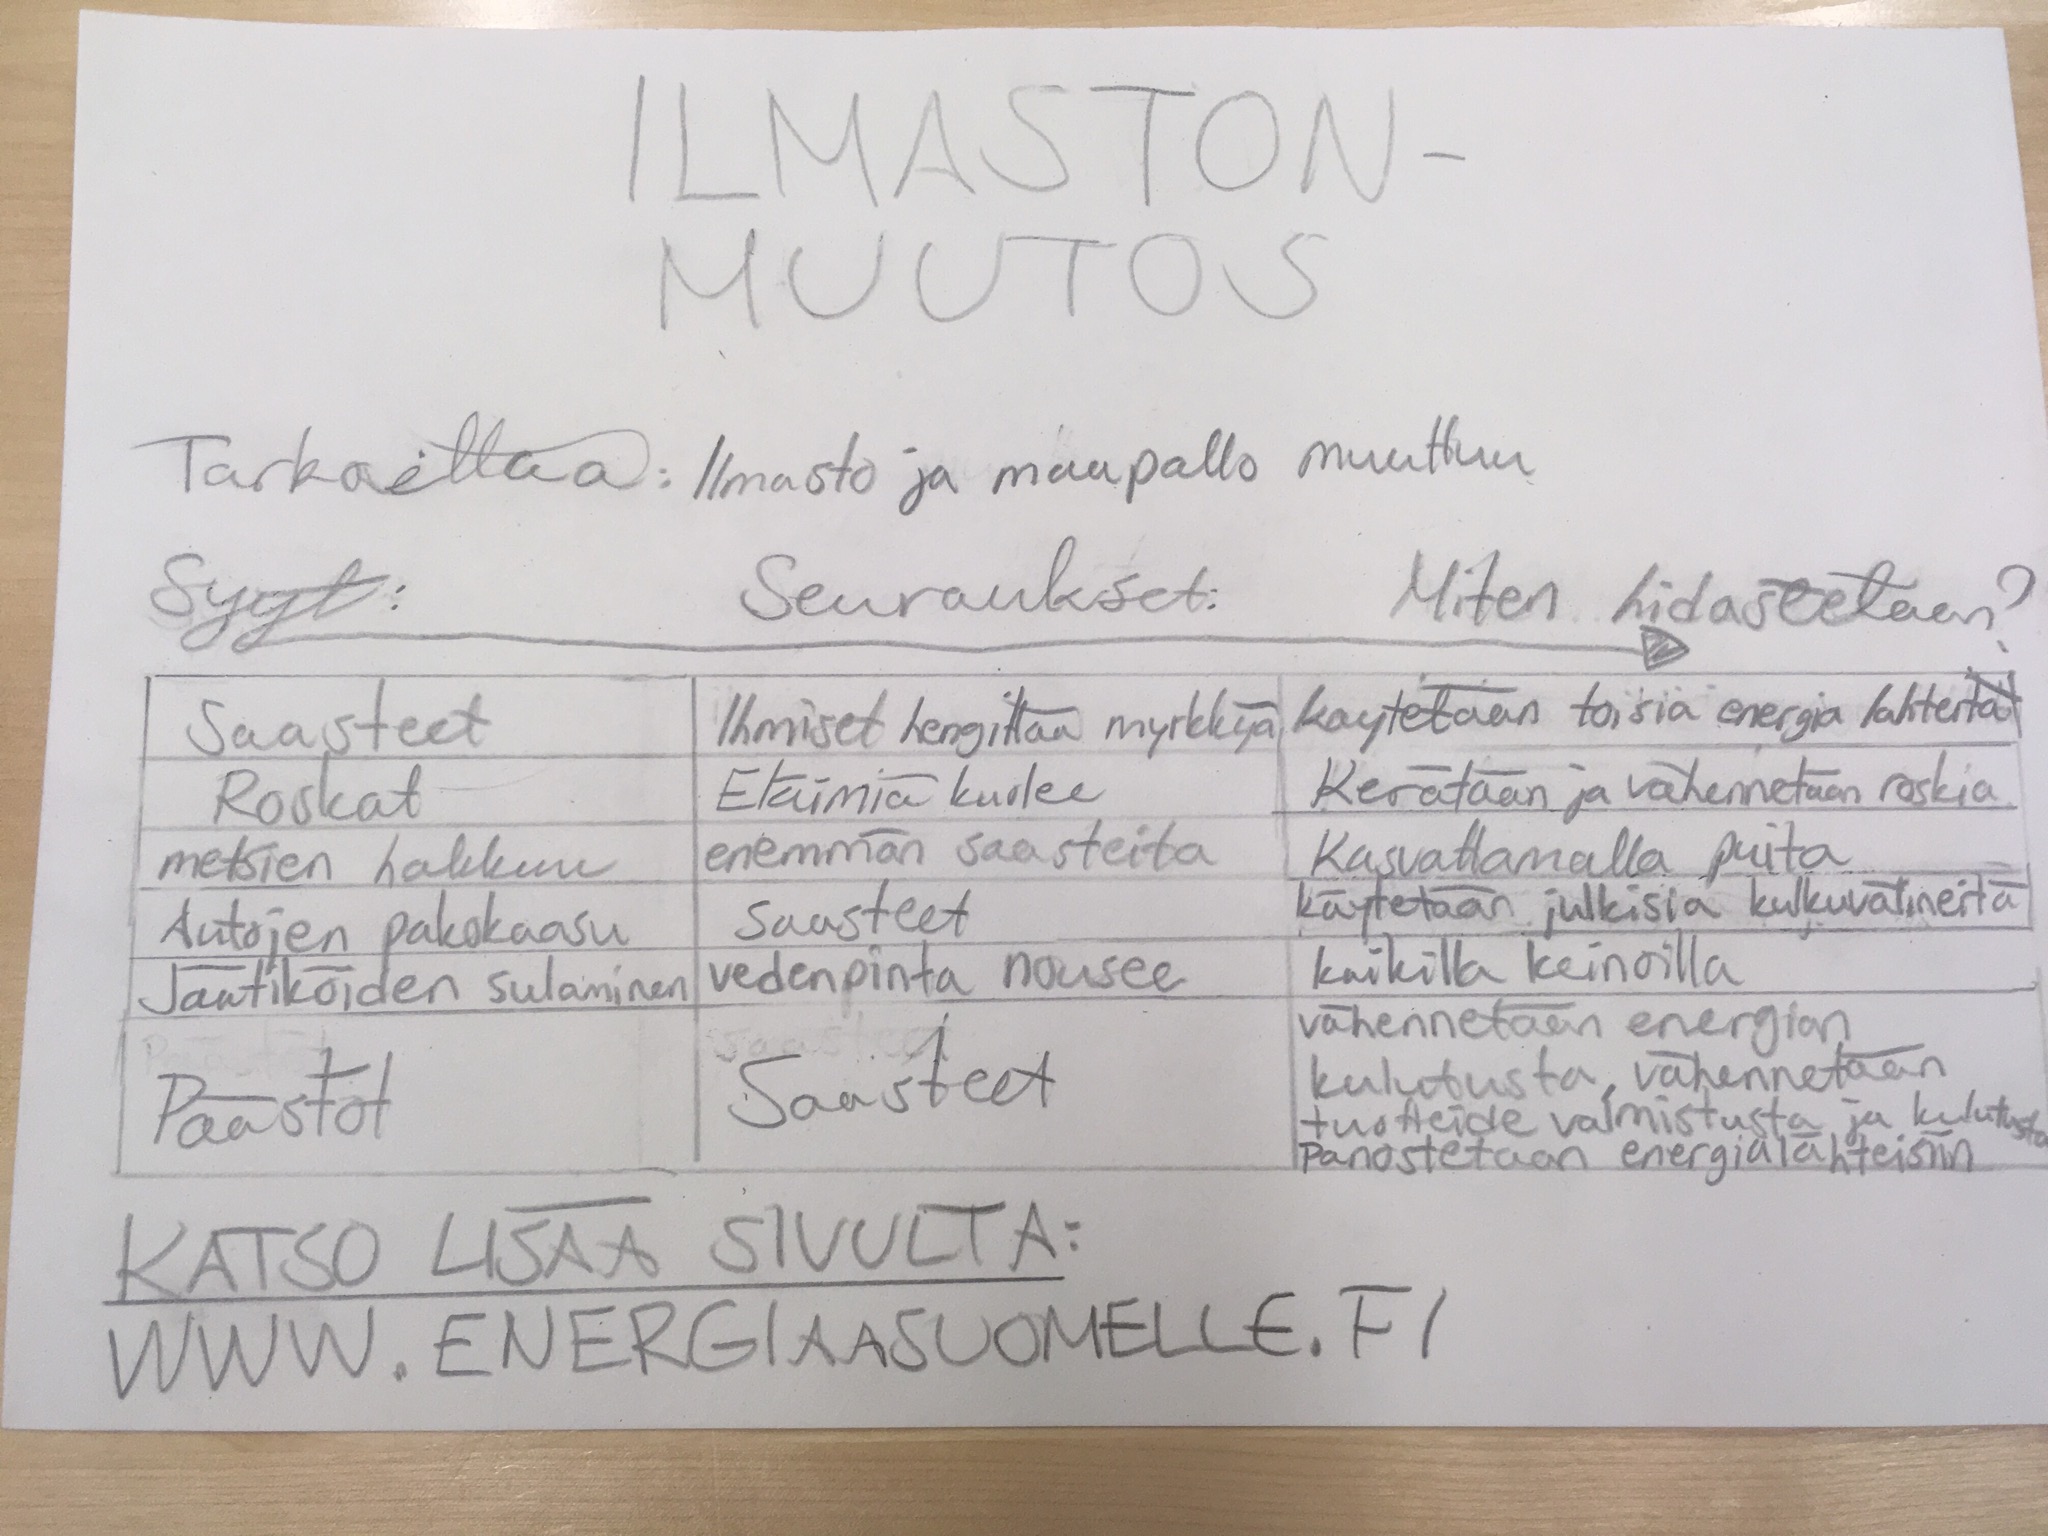 ILMASTON-
MUUTOS
Tarkoittaa: Ilmasto ja maapallo muuttuu
Syyt: Seuraukset: Miten hidastetaan?
Saasteet Ihmiset hengittää myrkkyjä käytetään toisia energia lähteitä
Roskat Eläimiä kuolee Kerätään ja vähennetään roskia
metsien hakkuu enemmän saasteita Kasvattamalla puita
Autojen pakokaasu saasteet käytetään julkisia kulkuvälineitä
Jäätiköiden sulaminen vedenpinta nousee kaikilla keinoilla
Päästöt Saasteet vähennetään energian
kulutusta, vähennetään
tuotteide valmistusta ja kulutusta
Panostetaan energialähteisiin
KATSO LISÄÄ SIVULTA:
WWW.ENERGIAASUOMELLE.FI